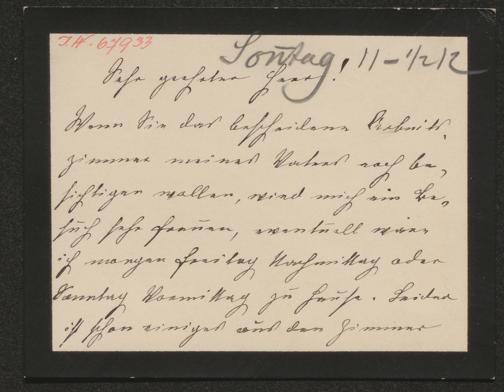 I.N. 67933
Sonntag 11-1/2 12
Sehr geehrter Herr!
Wenn Sie das bescheidene Arbeits-
zimmer meines Vaters noch be-
sichtigen wollen, wird mich ein Be-
such sehr freuen, eventuell wäre
ich morgen Freitag Nachmittag oder
Sonntag Vormittag zu Hause. Leider
ist schon einiges aus dem Zimmer